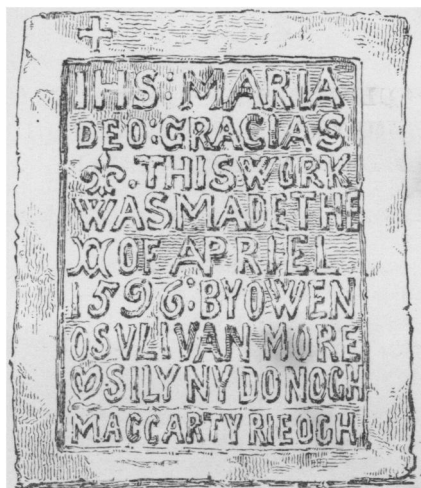 IHS: MARIA
DEO: GRACIAS
. THIS WORK
WAS MADE THE
XX OF APRIEL
1596: BY OWEN
OSVLIVAN MORE
SILY NY DONOGH
MACCARTY RIEOGH